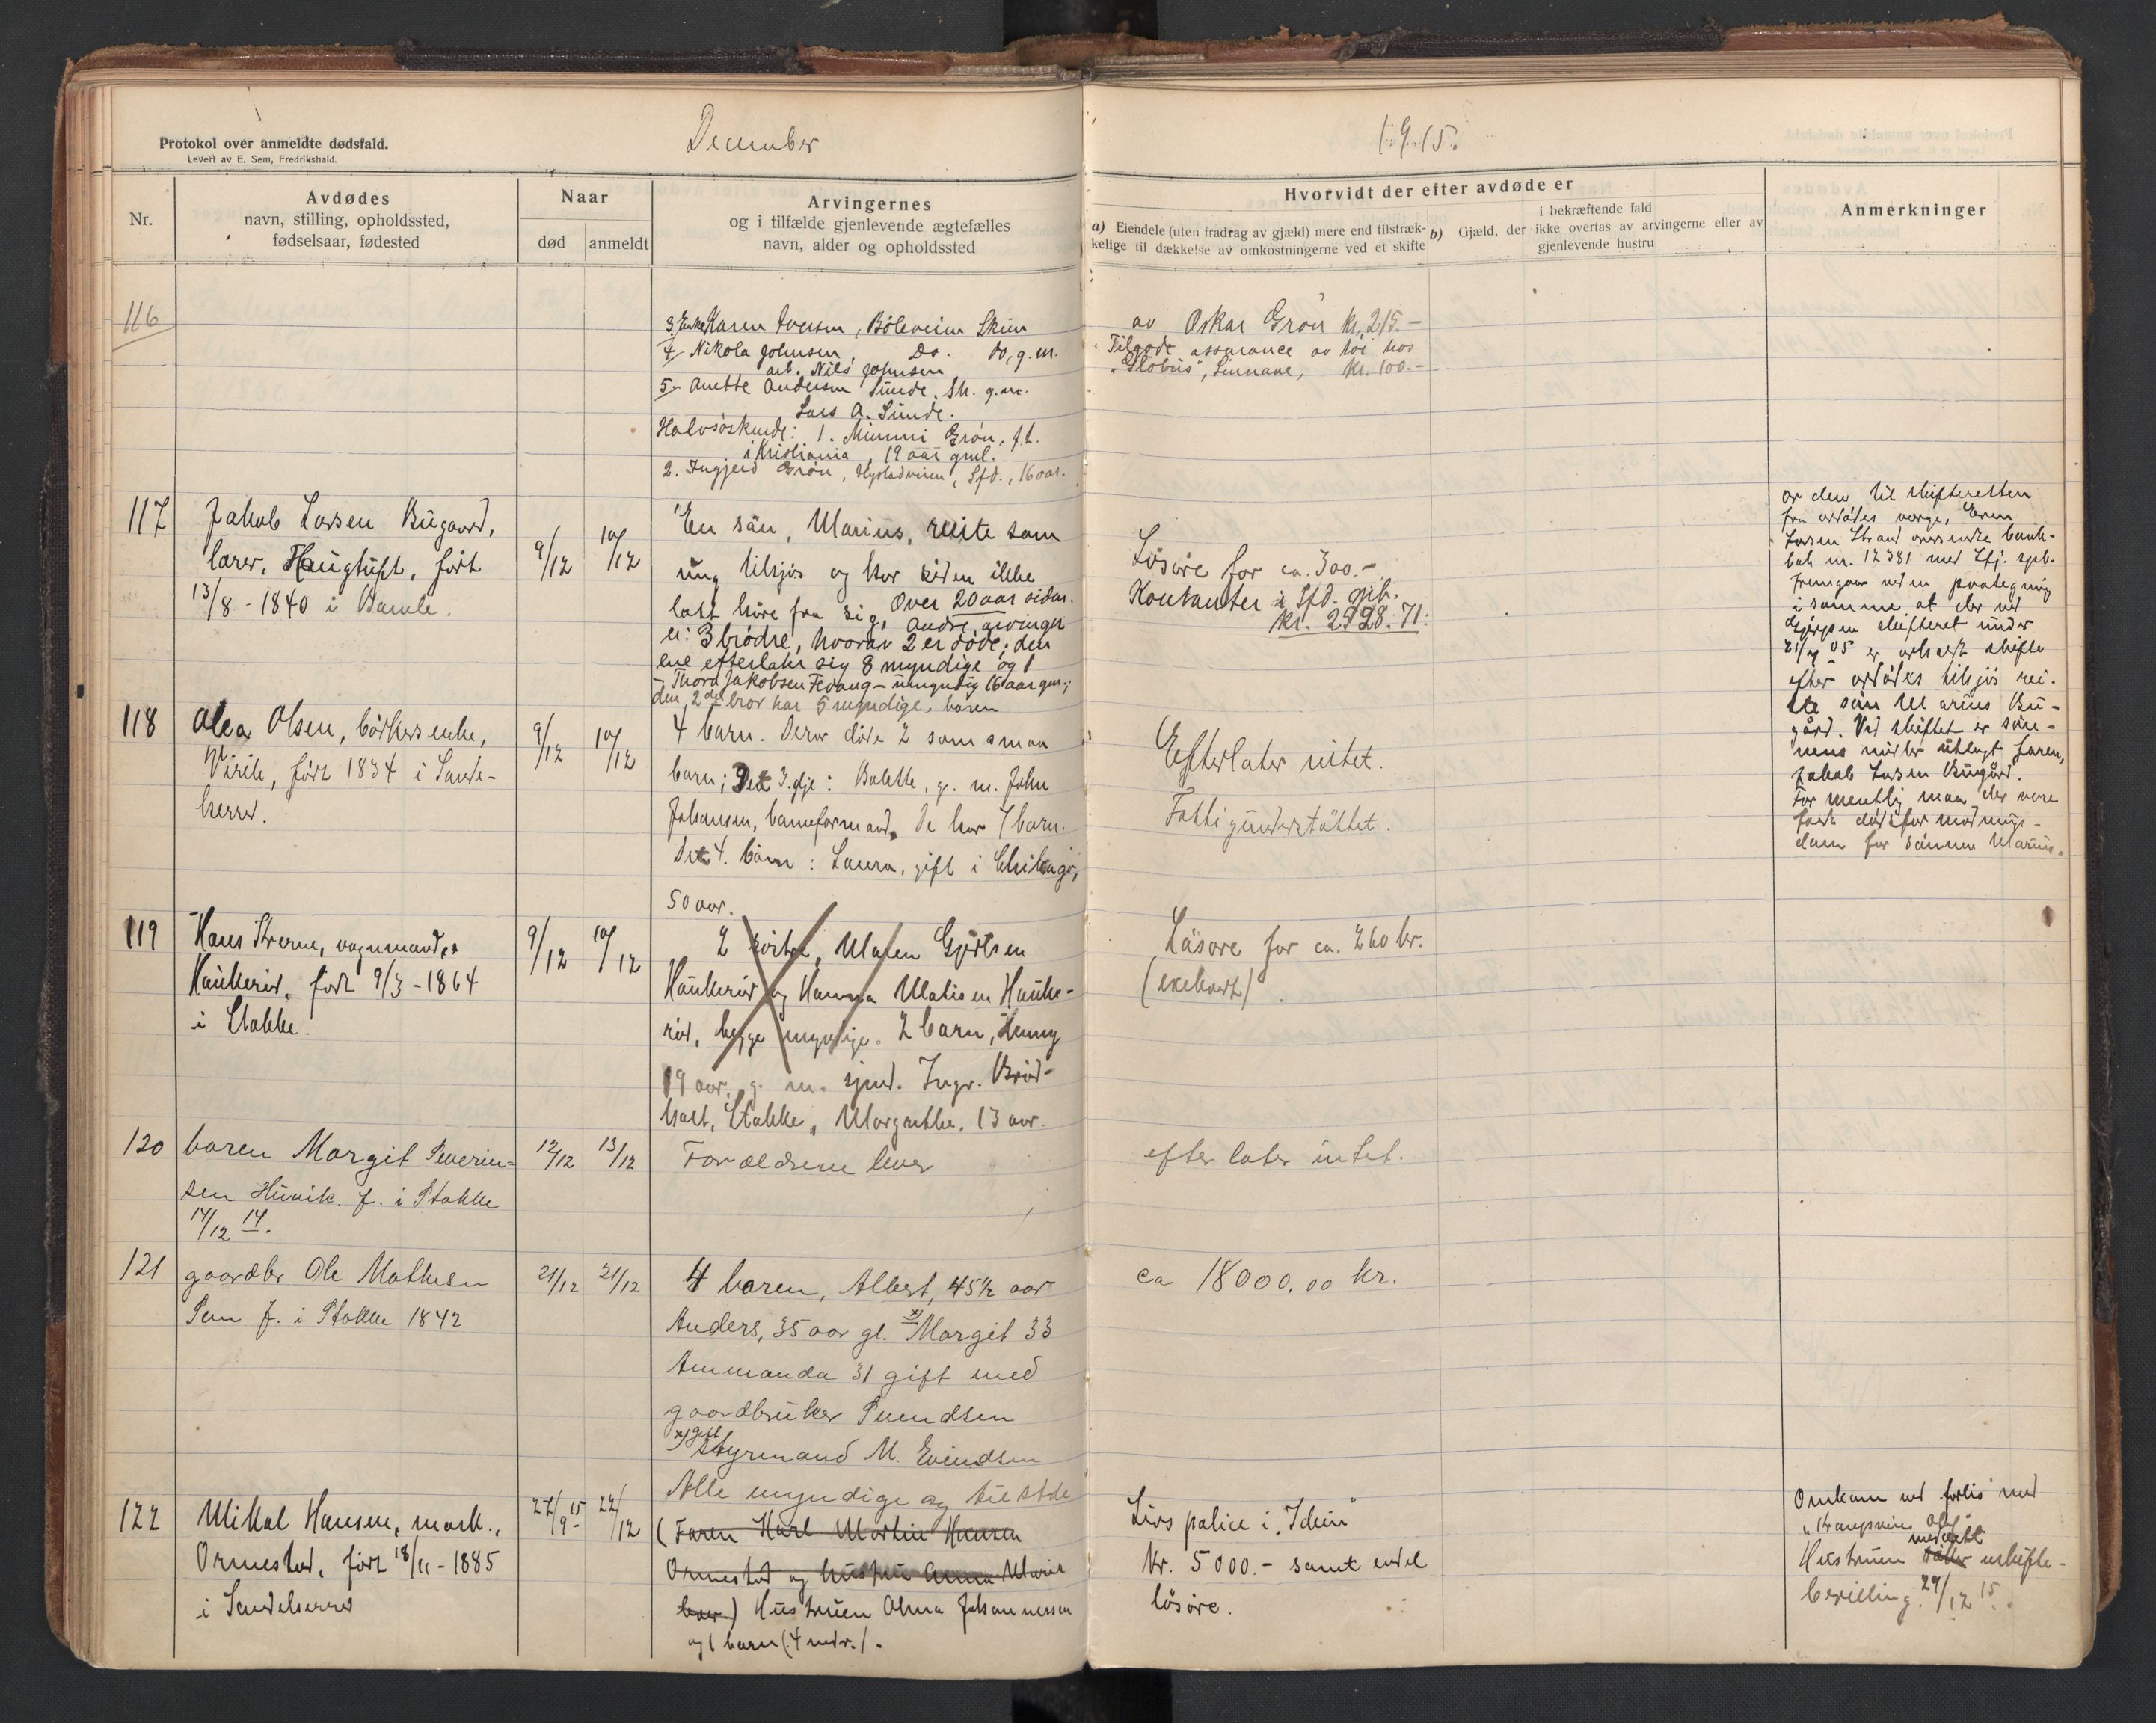 Protokol over anmeldte dødsfald.
Levert av E. Sem, Fredrikshald.
December
1915.
Nr.
Avdødes
navn, stilling, opholdssted,
fødselsaar, fødested
Naar
død
anmeldt
Arvingernes
og i tilfælde gjenlevende ægtefælles
navn, alder og opholdssted
Hvorvidt der efter avdøde er
a) Eiendele (uten fradrag av gjæld) mere end tilstræk-
kelige til dækkelse av omkostningerne ved et skifte
b) Gjæld, der
i bekræftende fald
ikke overtas av arvingerne eller av
gjenlevende hustru
Anmerkninger
116
3. Enke Karen Iversen, Böleveien Skien
4 Nikola Johnsen, Do. do, g.m.
arb. Nils Johnsen
5 Anette Andersen Sunde, Sk. g.m.
Lars A. Sunde.
Halvsöskende: 1. Mimmi Grön, f.t.
i Kristiania, 19 aar gml.
2. Ingjerd Grön, Hystadveien, Sfd., 16 aar.
av Oskar Grön kr. 215.-
Tilgode assurance av töi hos
"Globus", kr. 100.-
117
Jakob Larsen Bugaard,
lærer, Haugtuft, født
13/8 - 1840 i Bamle.
9/12
10/12
En sön, Marius, reiste som
ung tilsjös og har siden ikke
latt høre fra sig, Over 20 aar siden.
Andre arvinger
er: 3 brödre, hvorav 2 er döde; den
ene efterlater sig 8 myndige og 1
- Thora Jakobsen Fevang - umyndig 16 aar gm.;
den 2den bror har 5 myndige, barn
Lösöre for ca. 300.-
Kontanter i Sfd. spb.
kr. 2928.71.
av den til skifteretten
fra avdödes værge, Even
Larsen Strand oversendte bank-
bok nr. 12381 med Sfj. spb.
fremgaar ved en paategning
i samme at der ved
Gjerpen skifteret under
21/4 05 er avholdt skifte
efter avdödes tilsjös rei-
ste sön Marius Bu-
gård. Ved skiftet er sön-
nens midler utlagt faren,
Jakob Larsen Bugård.
Formentlig maa der være
født dödsformodnings-
dom for sönnen Marius.
118
Olea Olsen, bödkersenke,
Virik, født 1834 i Sande-
herred.
9/12
10/12
4 barn. Derav døde 2 som smaa
barn; Det 3.dje: Bolette, g. m. John
Johansen, baneformand. De har 7 barn.
Det 4. barn: Laura, gift i Chikago,
50 aar.
Efterlater intet.
Fattigunderstöttet.
119
Hans Stverne, vognmand,
Haukeröd, født 9/3 - 1864
i Stokke.
9/12
10/12
2 søstre, Maren Gjertsen
Haukeröd og Hanna Matisen Hauke-
röd, begge myndige. 2 barn, Henny
19 aar, g. m. sjmd. Ingv. Bröd-
holt, Stokke, Margrethe, 13 aar.
Lösöre for ca. 260 kr.
120
baren Margit Severin-
sen Huvik. f. i Stokke
14/12 14.
12/12
13/12
Forældrene lever
efterlater intet.
121
gaardbr Ole Mathisen
Sem f. i Stokke 1842
21/12
21/12
4 baren, Albert, 45 1/2 aar
Anders, 35 aar gl. x) Margit 33
Ammanda 31 gift med
gaardbruker Svendsen
x) gift styrmand M. Evindsen
Alle myndige og tilstde
ca 18000.00 kr.
122
Mikal Hansen, mask.,
Ormestad, født 18/11 - 1885
i Sandeherred
27/9 15
22/12
(Faren Karl Martin Hansen
Ormestad og hustru Anna Marie
lever) Hustruen Alma Johannessen
og 1 barn (4 mdr.).
Livspolice i "Idun"
kr. 5000.- samt endel
lösöre.
Omkom ved forlis med
Hustruen meddelt uskifte-
bevilling 29/12 15.